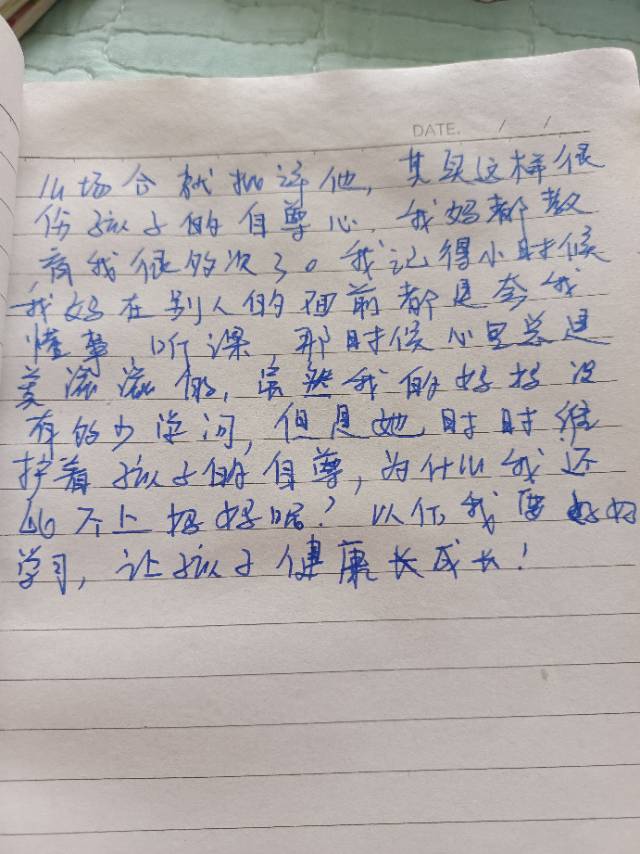 DATE. / /
么场合就批评他，其实这样很
伤孩子的自尊心。我妈都教
育我很多次了。我记得小时候
我妈在别人的面前都是夸我
懂事，听课，那时候心里总是
美滋滋的，虽然我的妈妈没
有多少学问，但是她时时维
护着孩子的自尊，为什么我还
比不上妈妈呢？以后我要好好
学习，让孩子健康长成长！